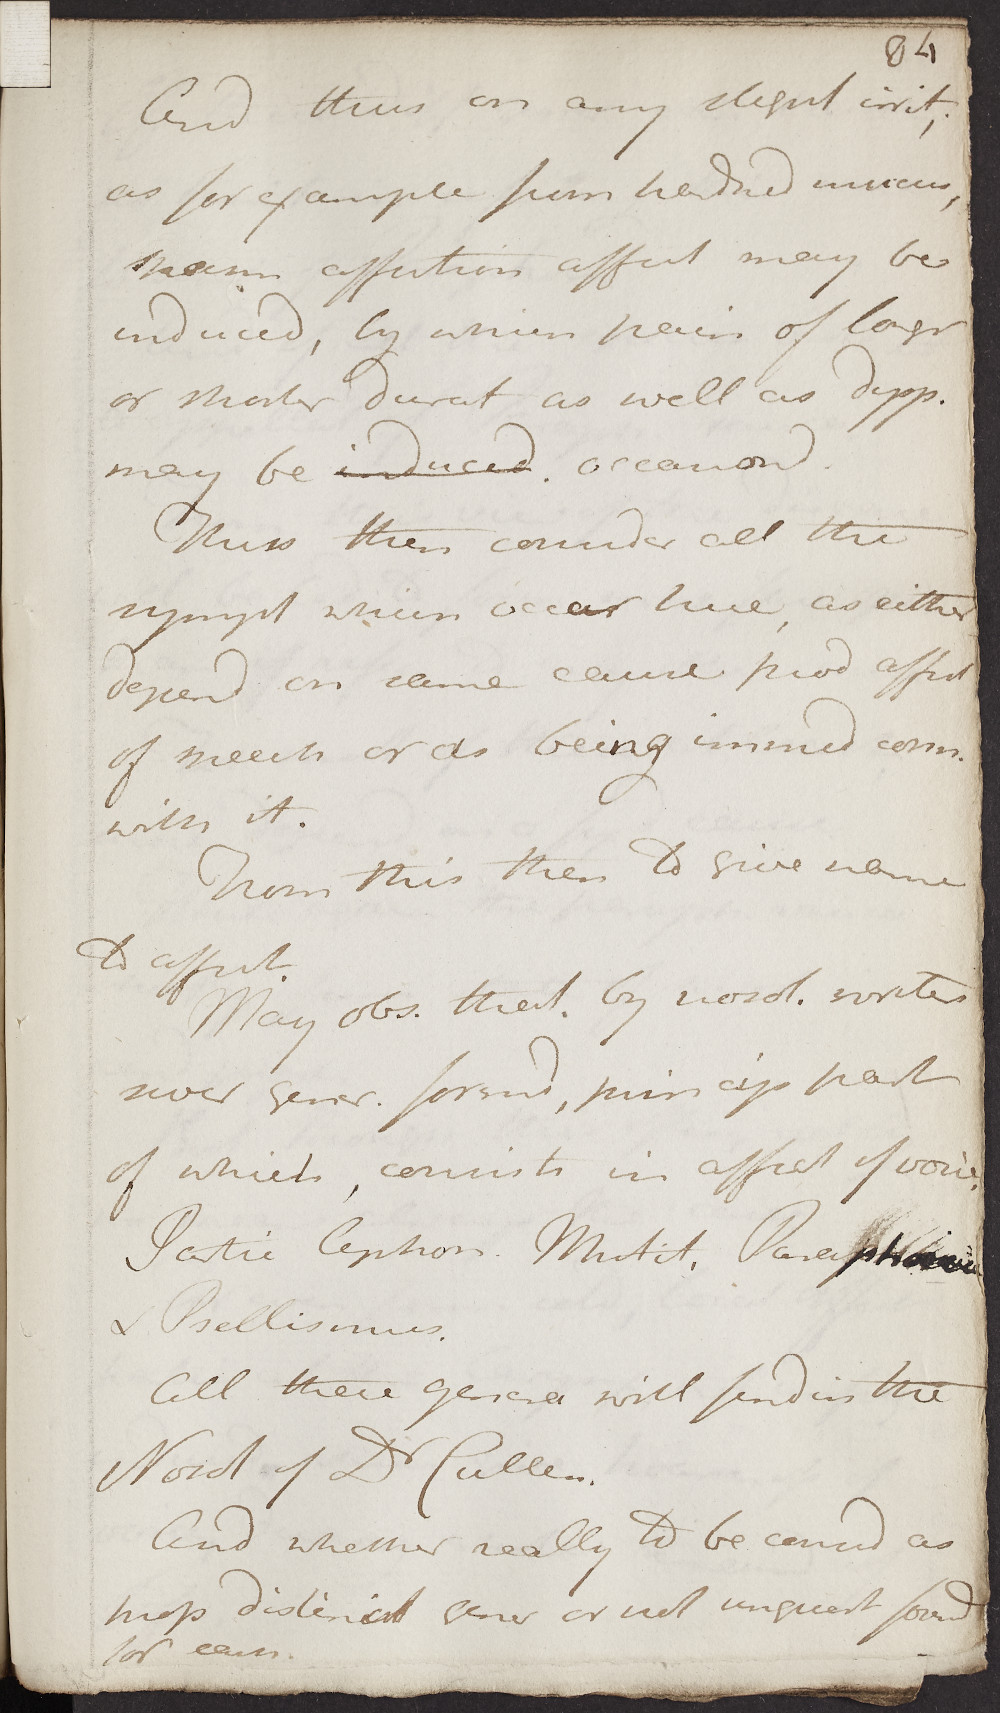 84
And thus on any slight irrit,
as for example from hardned mucus,
affection affect may be
induced, by which pain of longr
or shorter durat as well as dypp.
may be induced. occasiond.
Thus then consider all the
sympt which occur here, as either
depend on same cause prod affect
of speech or as being immed conn.
with it.
From this then to give name
to affect.
May obs. that. by nosol. writers
sever gener. formd, princip part
of which, consists in affect of voice.
Partic Aphon. Mutit, Paraphonia
& Psellismus.
All these genera will find in the
Nosol of Dr Cullen.
And whether really to be consd as
distinct gener or not unquest found
for each.